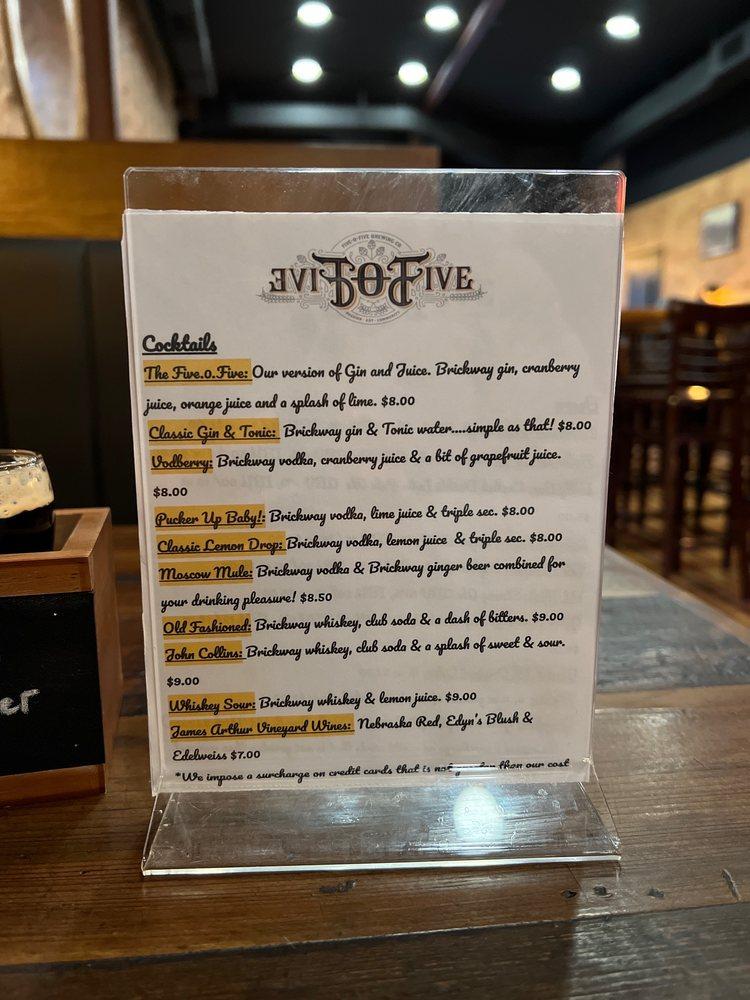 FIVE-O-FIVE BREWING CO.
FIVE FOF FIVE
Cocktails
The Five.o.Five: Our version of Gin and Juice. Brickway gin, cranberry
juice, orange juice and a splash of lime. $8.00
Classic Gin & Tonic: Brickway gin & Tonic water....simple as that! $8.00
Vodberry: Brickway vodka, cranberry juice & a bit of grapefruit juice.
$8.00
Pucker Up Baby!: Brickway vodka, lime juice & triple sec. $8.00
Classic Lemon Drop: Brickway vodka, lemon juice & triple sec. $8.00
Moscow Mule: Brickway vodka & Brickway ginger beer combined for
your drinking pleasure! $8.50
Old Fashioned: Brickway whiskey, club soda & a dash of bitters. $9.00
John Collins: Brickway whiskey, club soda & a splash of sweet & sour.
$9.00
Whiskey Sour: Brickway whiskey & lemon juice. $9.00
James Arthur Vineyard Wines: Nebraska Red, Edyn's Blush &
Edelweiss $7.00
*We impose a surcharge on credit cards that is not greater than our cost
er